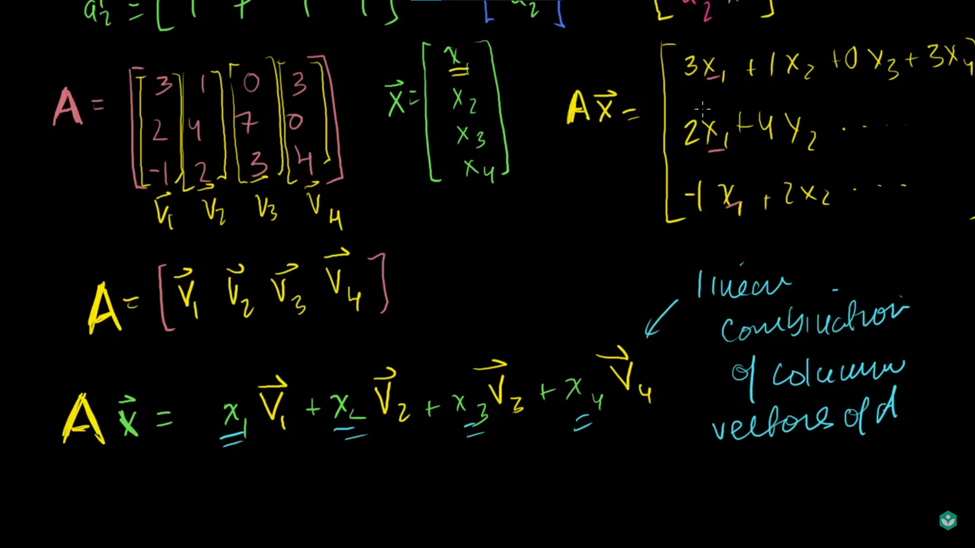 a₂ = [ 1 + 1 1 ] [ a₂ ] [ a₂ ]
A = [ 3 1 0 3
2 4 7 0
-1 2 3 4 ]
v⃗₁ v⃗₂ v⃗₃ v⃗₄
x⃗ = [ x₁
x₂
x₃
x₄ ]
A x⃗ = [ 3x₁ + 1x₂ + 0x₃ + 3x₄
2x₁ + 4y₂ ....
-1 x₁ + 2x₂ ... ]
A = [ v⃗₁ v⃗₂ v⃗₃ v⃗₄ ]
A x⃗ = x₁ v⃗₁ + x₂ v⃗₂ + x₃ v⃗₃ + x₄ v⃗₄
linear
combination
of column
vectors of A